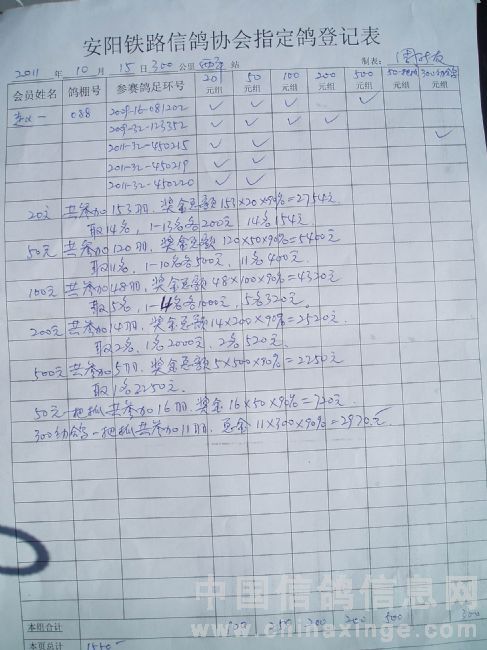 安阳铁路信鸽协会指定鸽登记表
2011 年 10 月 15 日 300 公里 站 制表:
会员姓名 鸽棚号 参赛鸽足环号 20元组 50元组 100元组 200元组 500元组 50一把抓 300幼鸽
一 088 2009-16-081202 ✓ ✓ ✓ ✓
2009-32-123352 ✓ ✓ ✓
2011-32-450215 ✓ ✓ ✓
2011-32-450219 ✓ ✓
2011-32-450220 ✓ ✓
20元 共参加153羽, 奖金总额153×20×90%=2754元
取14名, 1-13名各200元 14名154元
50元 共参加120羽, 奖金总额 120×50×90%=5400元
取11名, 1-10名各500元, 11名400元
100元 共参加48羽, 奖金总额48×100×90%=4320元
取5名, 1-4名各1000元, 5名320元。
200元 共参加14羽, 奖金总额14×200×90%=2520元
取2名, 1名2000元, 2名520元.
500元 共参加5羽, 奖金总额5×500×90%=2250元
取1名2250元.
50元一把抓共参加16羽, 奖金16×50×90%=720元.
300幼鸽一把抓共参加11羽, 总金11×300×90%=2970元
本组合计 100 250 200 200 500 300
本页总计 1550
中国信鸽信息网
www.chinaxinge.com